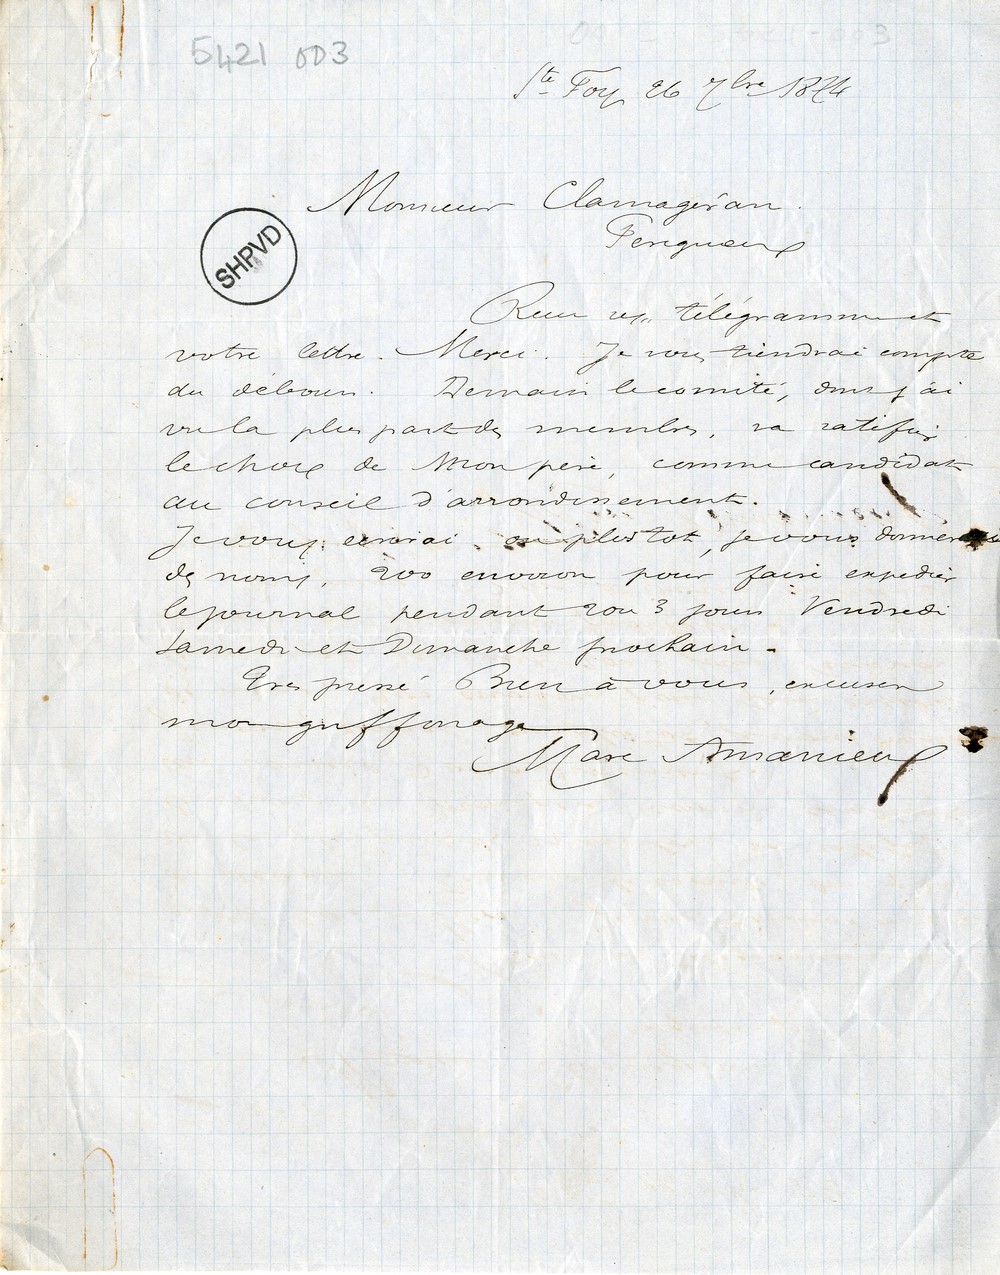 5421 003
Ste Foy 26 7bre 1874
Monsieur Clamageran.
Perigueux
SHPVD
Recu télégramme et
votre lettre. Merci. Je vous tiendrai compte
du débours. Demain le comité, dont j'ai
vu la plus part des membres, va ratifier
le choix de Mon père, comme candidat
au conseil d'arrondissement.
Je vous ecrirai ou plustot, je vous donnerai
des noms, 200 environ pour faire expedier
le journal pendant 2 ou 3 jours Vendredi
Samedi et Dimanche prochain.
Tres pressé Bien à vous, excusez
mon griffonage
Marc Amanieux